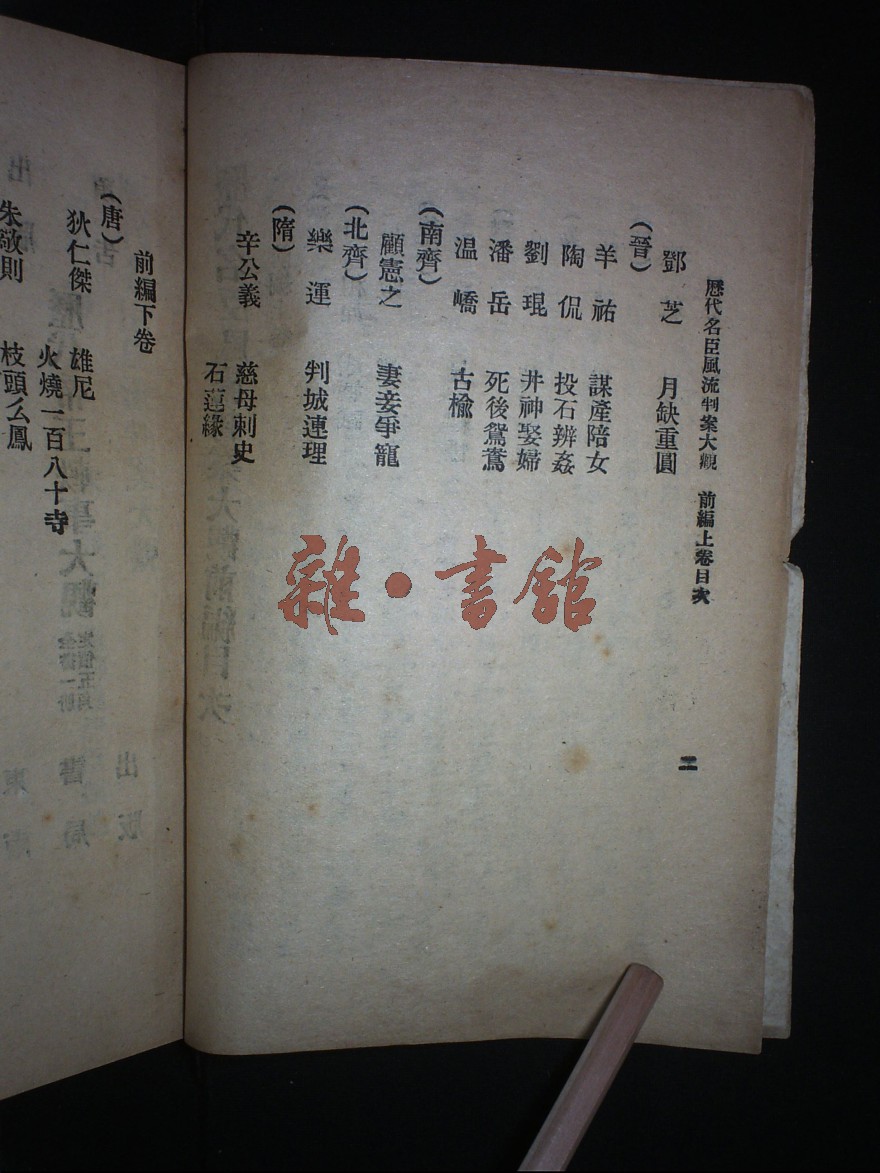 歷代名臣風流判案大觀 前編上卷目次 二
鄧芝 月缺重圓
(晉)
羊祐 謀產陪女
陶侃 投石辨姦
劉琨 井神娶婦
潘岳 死後鴛鴦
温嶠 古楡
(南齊)
顧憲之 妻妾爭寵
(北齊)
樂運 判城連理
(隋)
辛公義 慈母刺史
石蓮緣
前編下卷
(唐)
狄仁傑 雄尼
火燒一百八十寺
朱敬則 枝頭么鳳
雜·書館